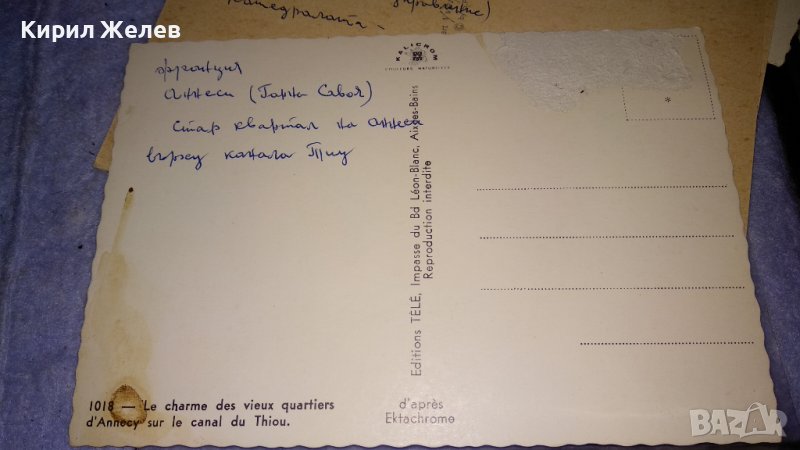 Кирил Желев
здравите)
Катедралата -
Франция
Аннеси (Горна Савоя)
стар квартал на Аннеси
върху канала Тиу
KALICROM
COULEURS NATURELLES
*
Editions TÉLÉ, Impasse du Bd Léon-Blanc, Aix-les-Bains
Reproduction interdite
1018 — Le charme des vieux quartiers
d'Annecy sur le canal du Thiou.
d'après
Ektachrome
BAZAR